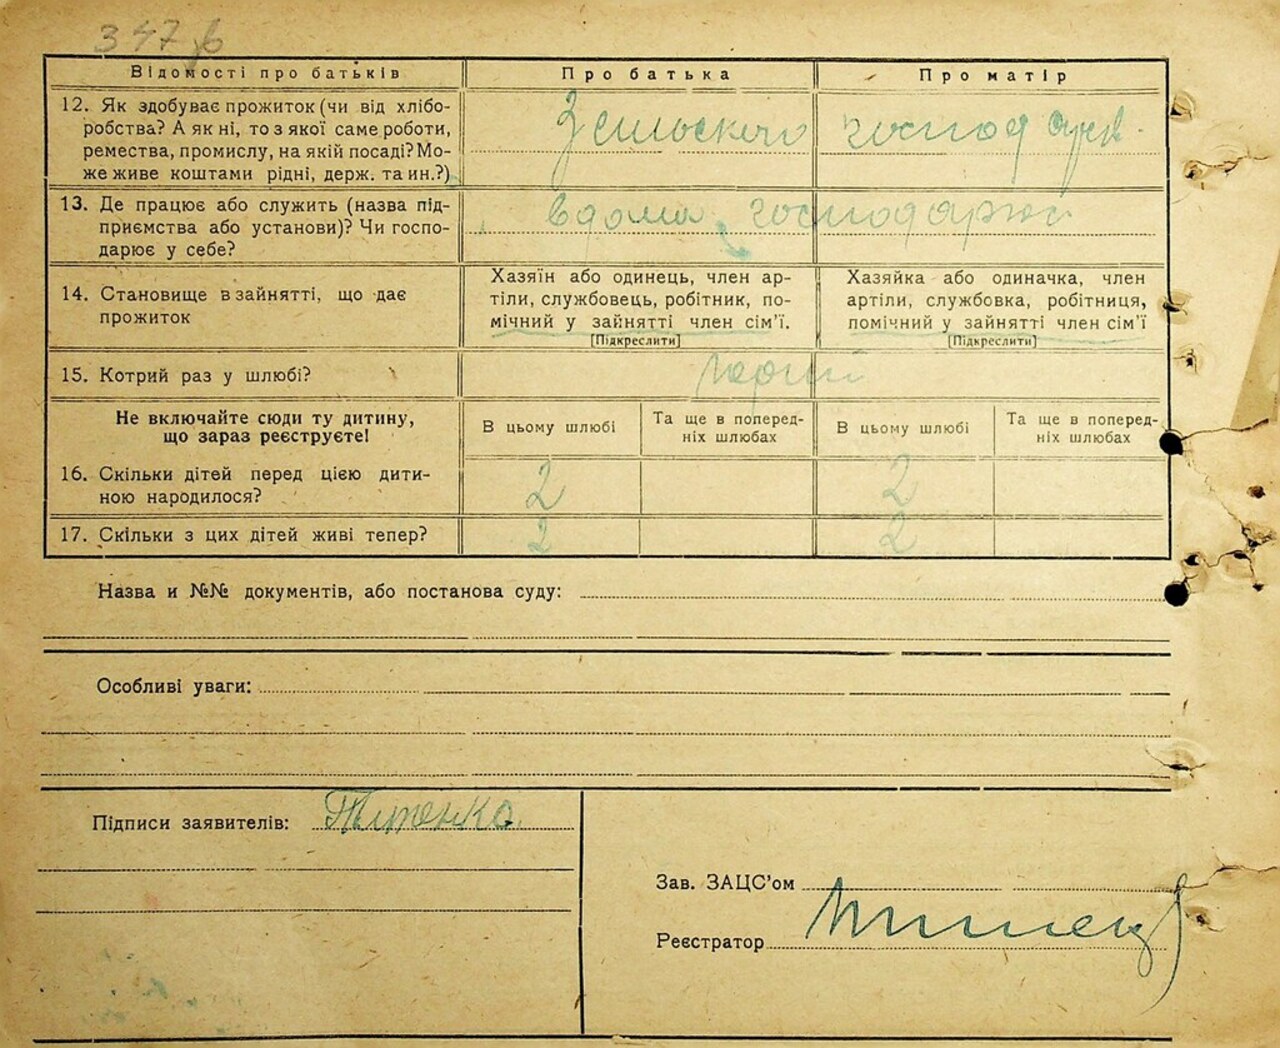 347 зв
Відомості про батьків
Про батька
Про матір
12. Як здобуває прожиток (чи від хлібо-
робства? А як ні, то з якої саме роботи,
ремества, промислу, на якій посаді? Мо-
же живе коштами рідні, держ. та ин.?)
З сільского господарв.
13. Де працює або служить (назва під-
приємства або установи)? Чи госпо-
дарює у себе?
вдома господарює
14. Становище в зайнятті, що дає
прожиток
Хазяїн або одинець, член ар-
тіли, службовець, робітник, по-
мічний у зайнятті член сім'ї.
[Підкреслити]
Хазяйка або одиначка, член
артіли, службовка, робітниця,
помічний у зайнятті член сім'ї
[Підкреслити]
15. Котрий раз у шлюбі?
Перший
Не включайте сюди ту дитину,
що зараз реєструєте!
В цьому шлюбі
Та ще в поперед-
ніх шлюбах
В цьому шлюбі
Та ще в поперед-
ніх шлюбах
16. Скільки дітей перед цією дити-
ною народилося?
2
2
17. Скільки з цих дітей живі тепер?
2
2
Назва и №№ документів, або постанова суду:
Особливі уваги:
Підписи заявителів:
Зав. ЗАЦС'ом
Реєстратор